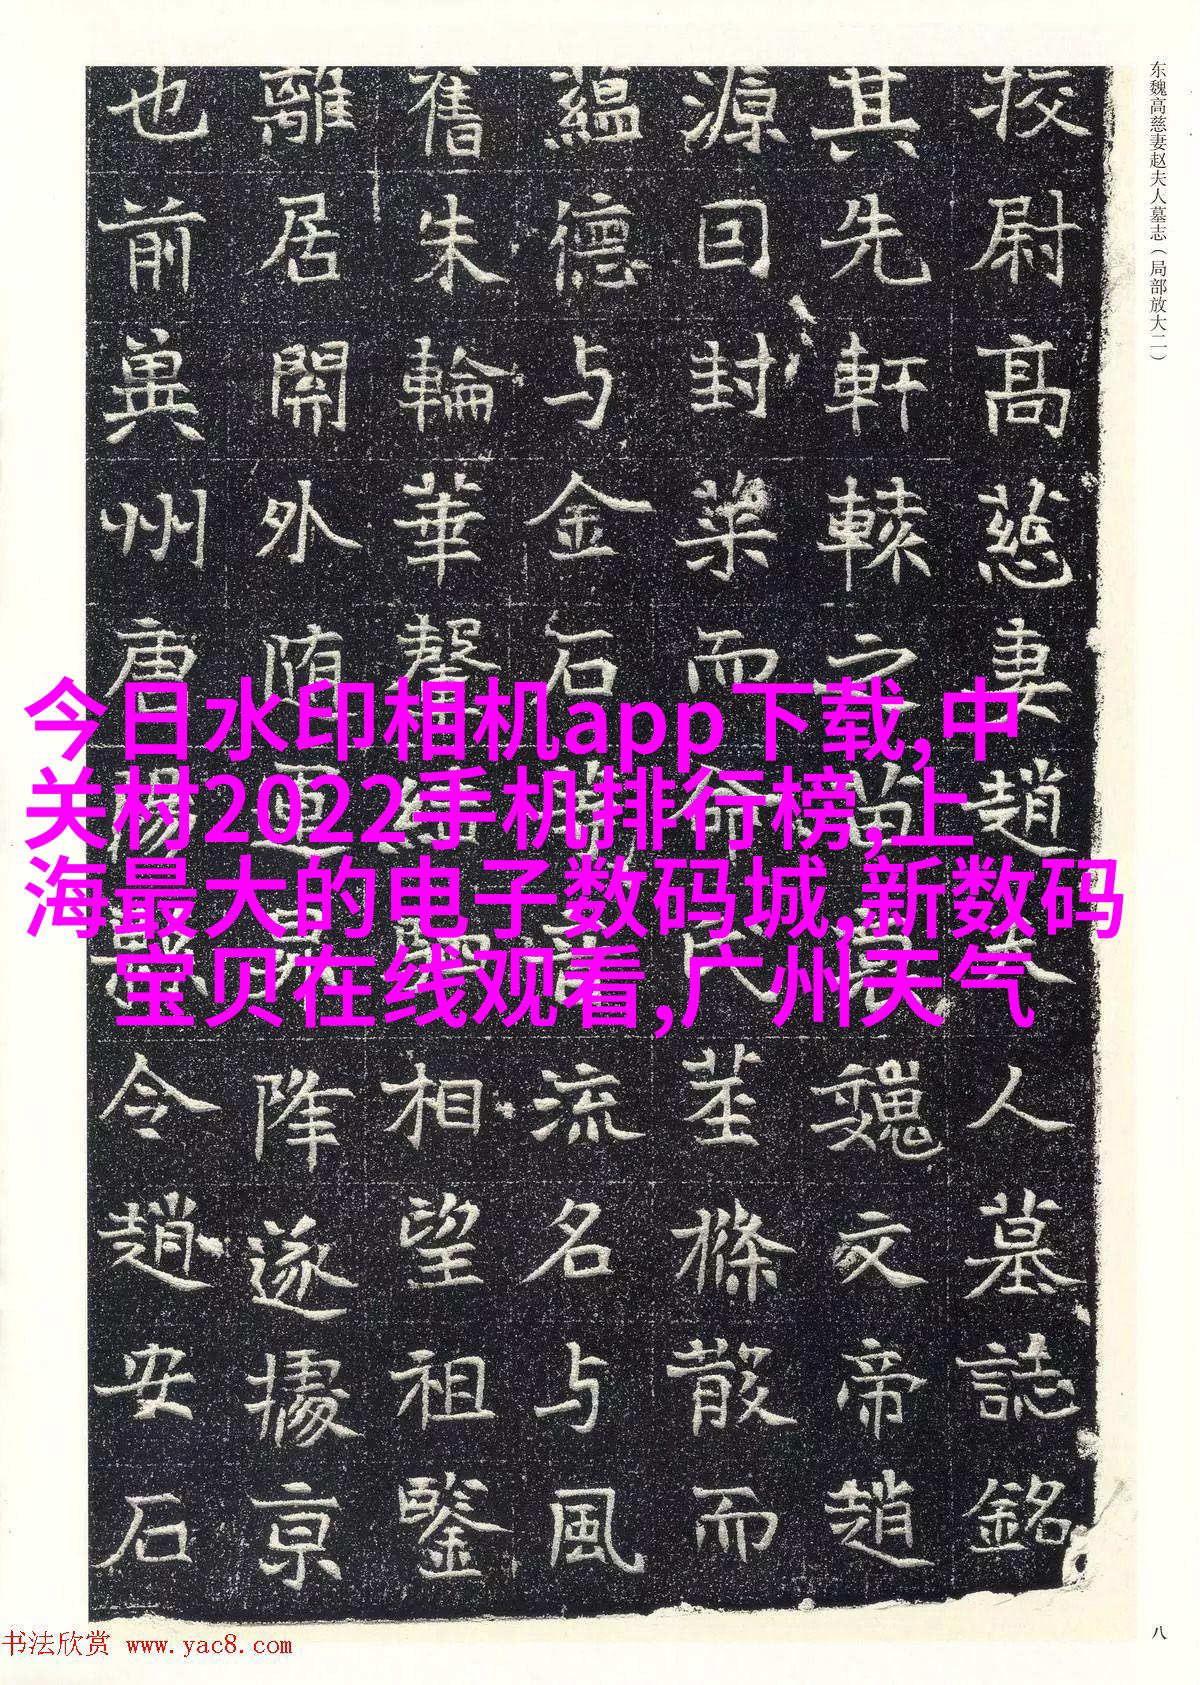 东魏高慈妻赵夫人墓志（局部放大二）
挍尉高慈妻趙夫人墓誌銘
其先軒轅之苗魏文帝趙
源囙封而命氏莖條散而
蘊德与金石流名与風
舊朱輪華馨相望祖鑒
離居開外隨運降遂據京
也前冀州唐陽縣令趙安石
今日水印相机app下载,中
关村2022手机排行榜,上
海最大的电子数码城,新数码
宝贝在线观看,广州天气
八
书法欣赏 www.yac8.com